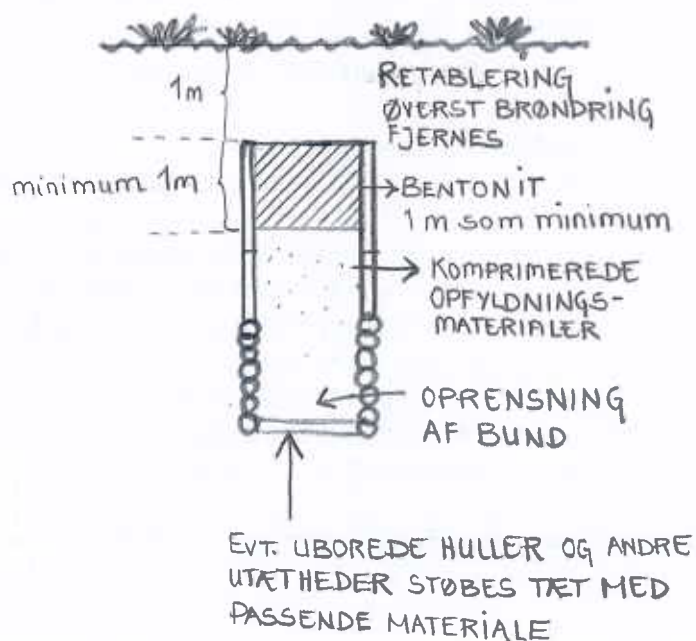 1m
RETABLERING
ØVERST BRØNDRING
FJERNES
minimum 1m
BENTONIT
1 m som minimum
KOMPRIMEREDE
OPFYLDNINGS-
MATERIALER
OPRENSNING
AF BUND
EVT. UBOREDE HULLER OG ANDRE
UTÆTHEDER STØBES TÆT MED
PASSENDE MATERIALE